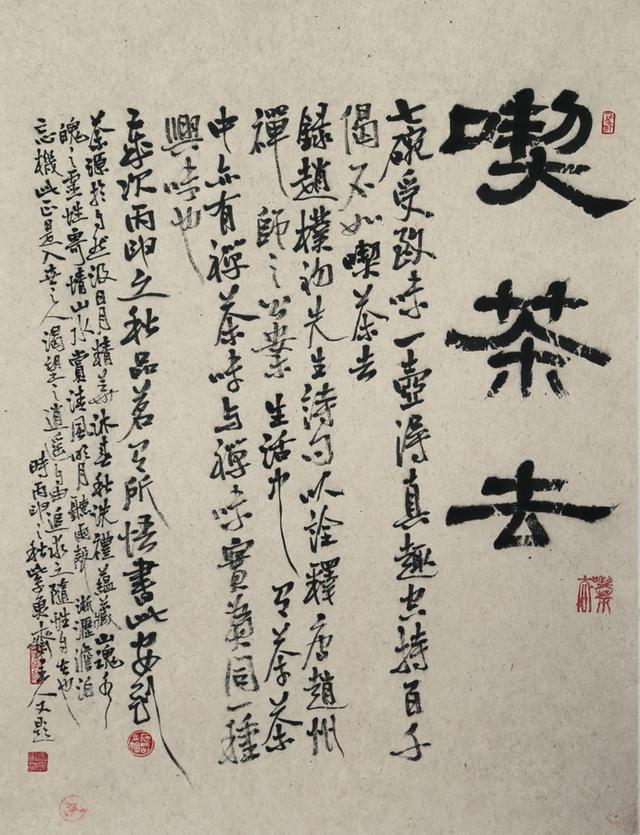 喫茶去
七碗受致味一壺得真趣空持百千
偈不如喫茶去
錄趙樸初先生詩句以詮釋唐趙州
禪師之公案生活中有茶茶
中亦有禪茶味与禪味實為同一種
興味也
歲次丙申之秋品茗有所悟書此安
茶源於自然汲日月精華沐春秋洗禮蘊藏山魂水
魄之靈性寄情山水賞清風明月聽雨聲淅瀝澹泊
忘機此正是入世之人渴望之逍遥自由追求之隨性自在也
時丙申之秋紫東齋主人又題
喫茶去